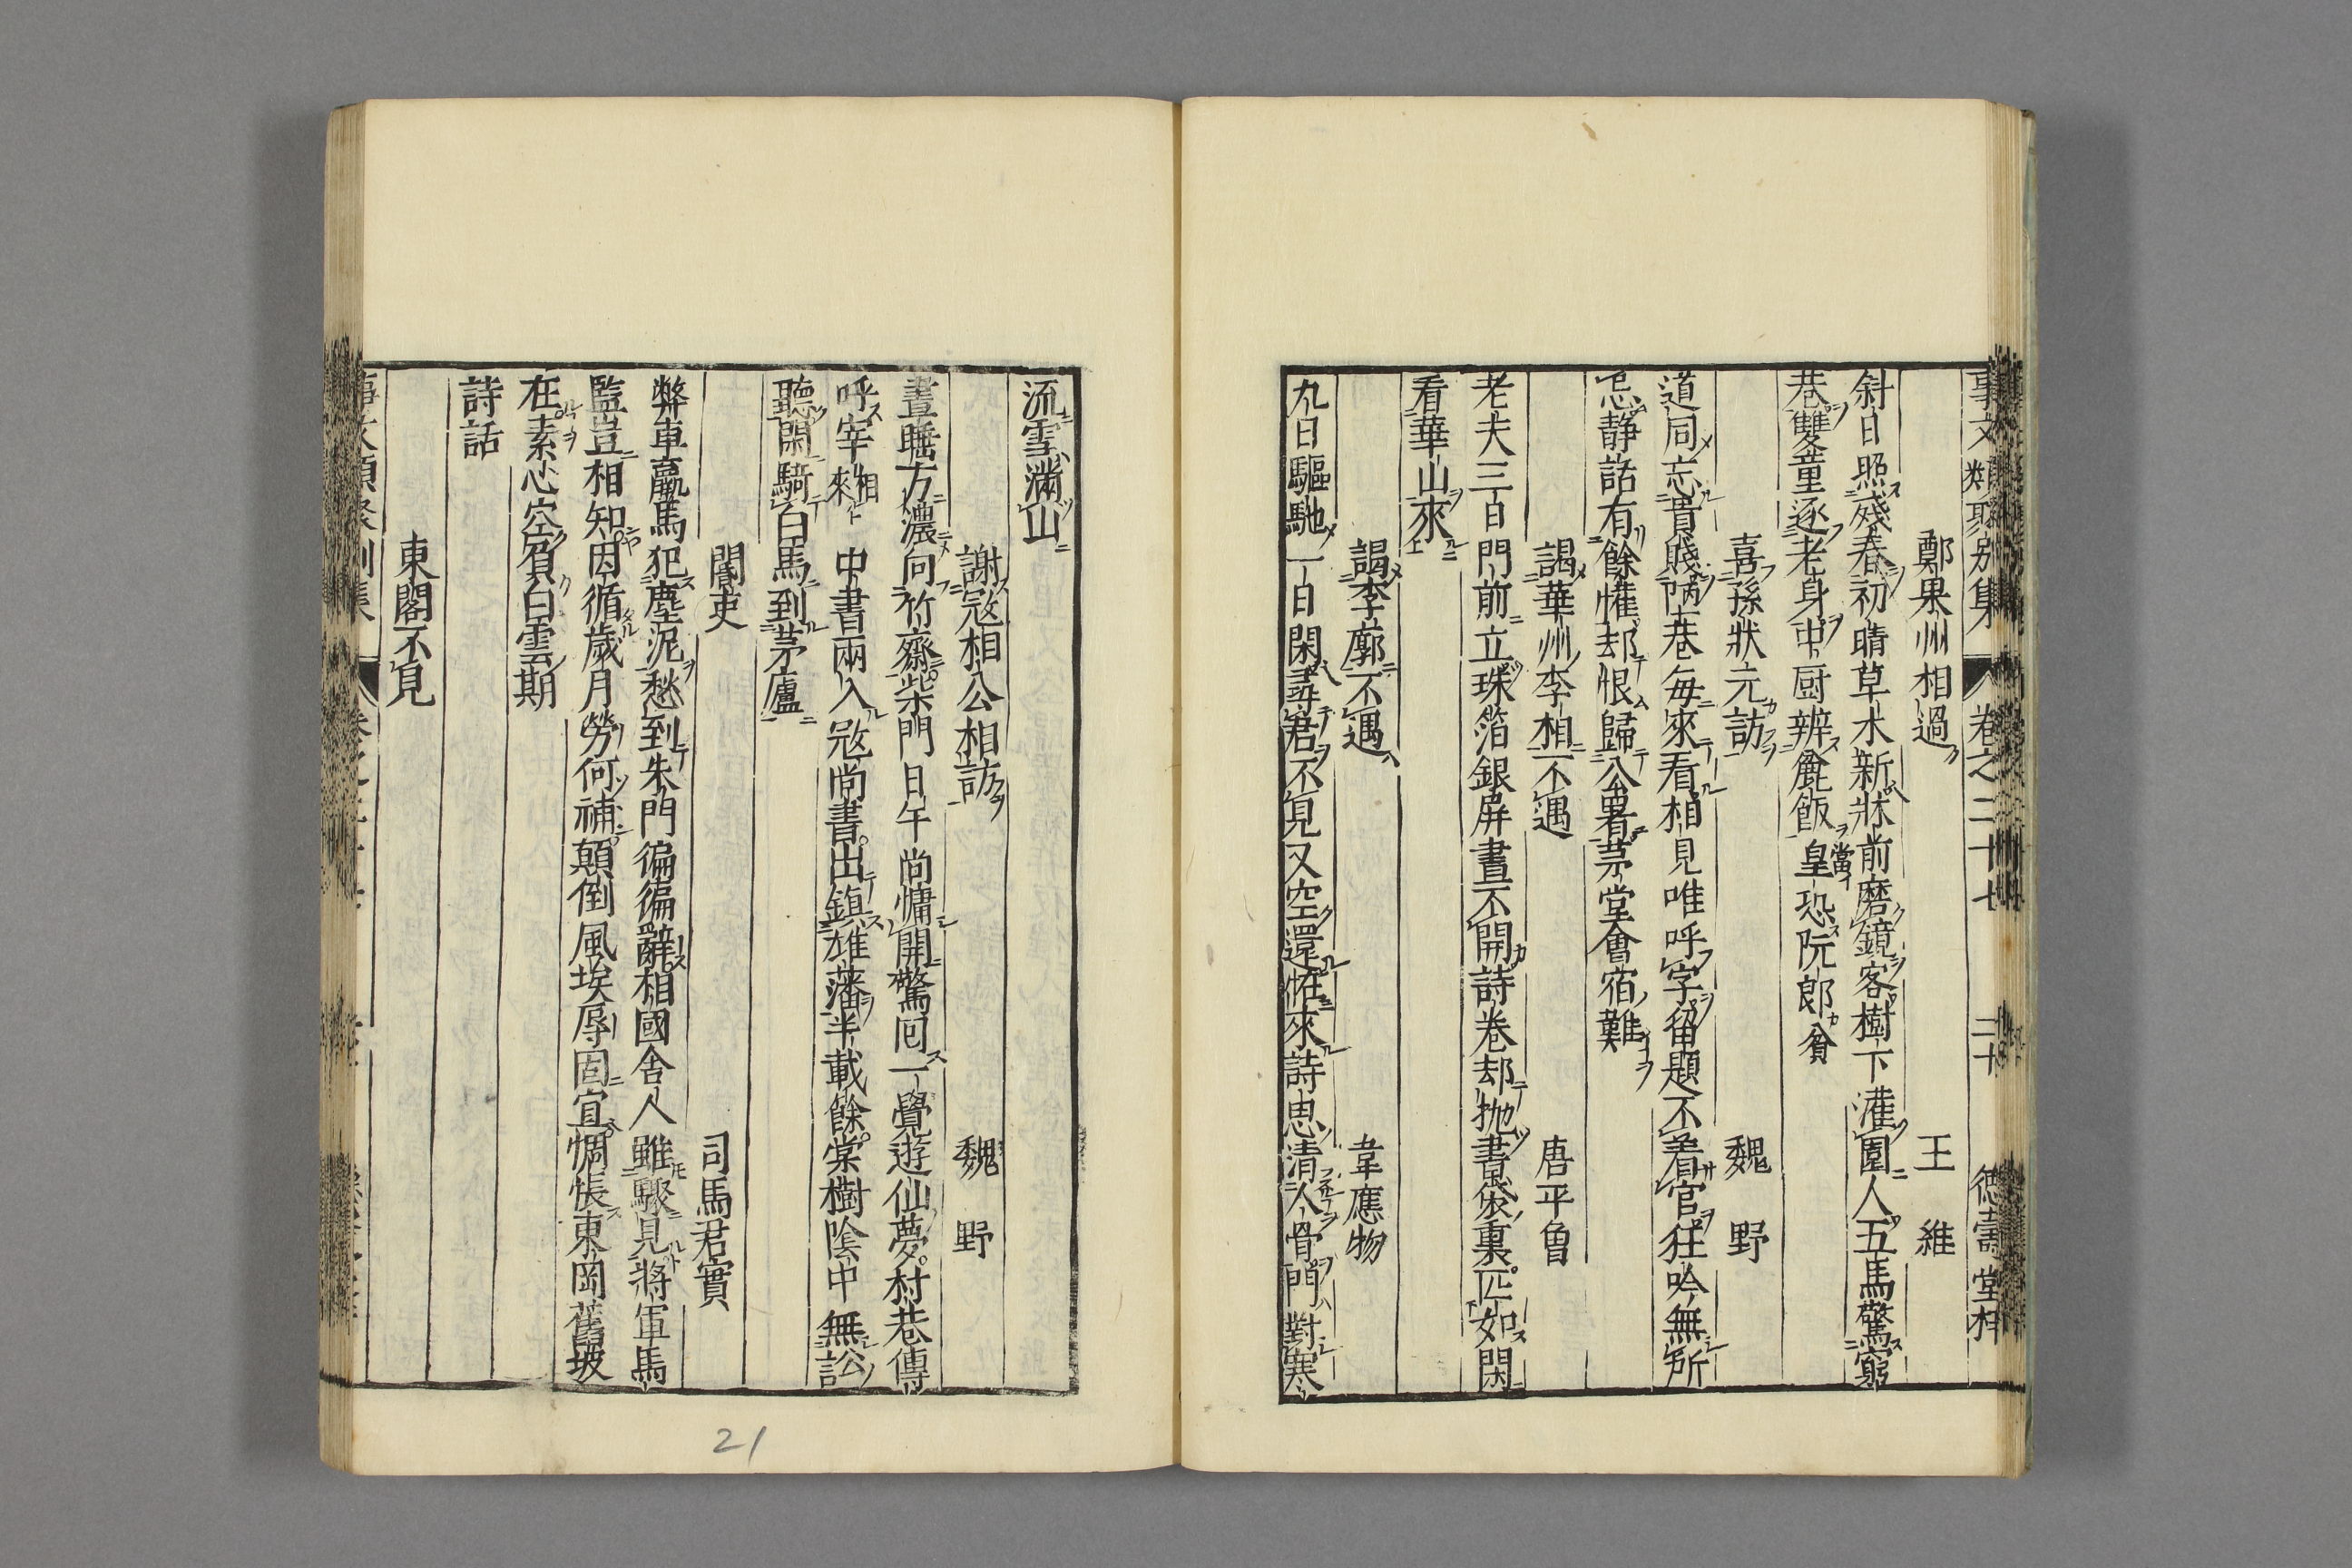 事文類聚别集 卷之二十七 二十 德壽堂梓
鄭果州相過 王維
斜日照殘春初晴草木新牀前磨鏡客樹下灌園人五馬驚窮
巷雙童逐老身中厨辨麄飯當皇恐阮郎貧
喜孫狀元訪 魏野
道同忘貴賤陋巷每來看相見唯呼字留題不著官狂吟無所
忌静話有餘懽却恨歸公署茅堂會宿難
謁華州李相不遇 唐平魯
老夫三日門前立珠箔銀屏晝不開詩卷却抛書袋裏匹如閑
看華山來
謁李廓不遇 韋應物
九日驅馳一日閑尋君不見又空還恠來詩思清人骨門對寒
流雪滿山
謝冦相公相訪 魏野
晝睡方濃向竹齋柴門日午尚慵開驚囘一覺遊仙夢村巷傳
呼宰相來 中書兩入冦尚書出鎮雄藩半載餘棠樹陰中無訟
聽閑騎白馬到茅廬
閽吏 司馬君實
弊車羸馬犯塵泥愁到朱門徧徧辭相國舍人雖驟見將軍馬
監豈相知因循歲月勞何補顛倒風埃辱固宜惆悵東岡舊坡
在素心空負白雲期
詩話
東閣不見